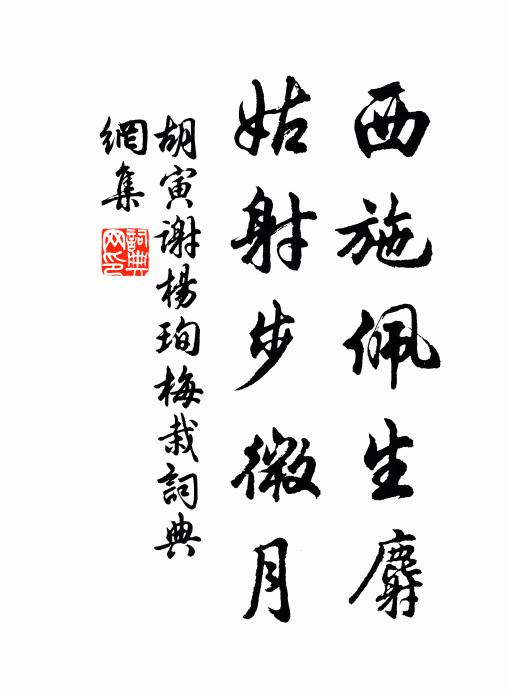 西施佩生麝
姑射步微月
胡寅谢杨珣梅栽詞典
網集
詞典
网印